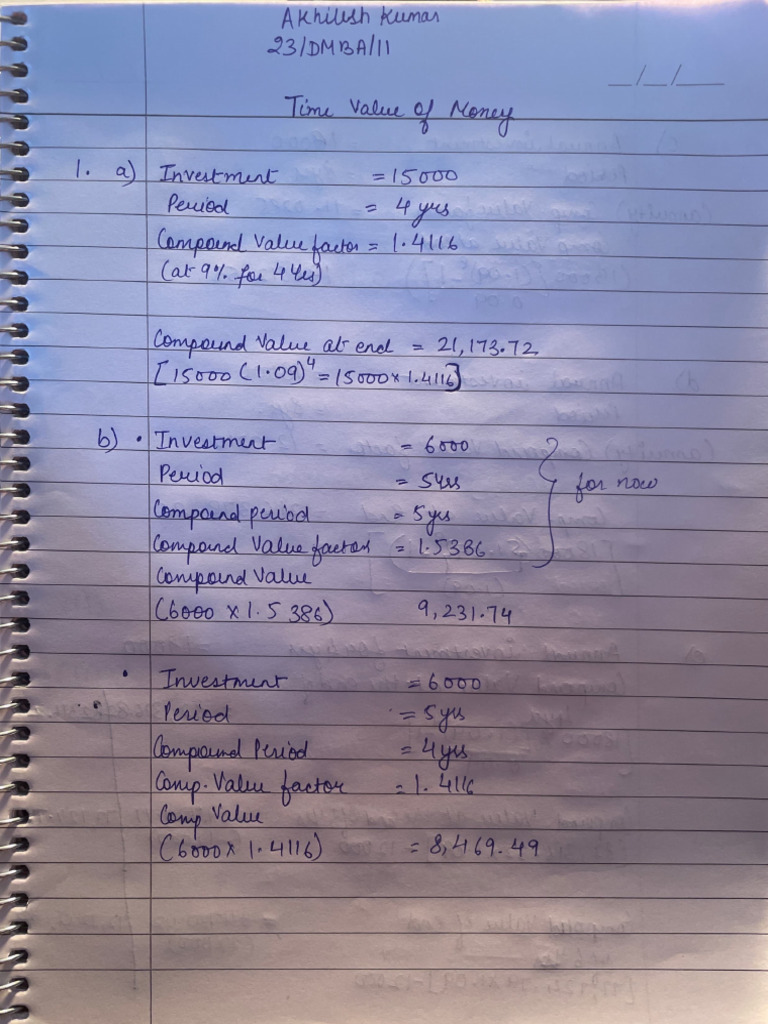 Akhilesh Kumar
23/DMBA/11
_/_/_
Time Value of Money
1. a) Investment = 15000
Period = 4 yrs
Compound Value factor = 1.4116
(at 9% for 4 Yrs)
Compound Value at end = 21,173.72
[15000 (1.09)^4 = 15000 x 1.4116]
b) • Investment = 6000
Period = 5 yrs
for now
Compound period = 5 yrs
Compound Value factor = 1.5386
Compound Value
(6000 x 1.5386) 9,231.74
• Investment = 6000
Period = 5 yrs
Compound Period = 4 yrs
Comp. Value factor = 1.4116
Comp Value
(6000 x 1.4116) = 8,469.49